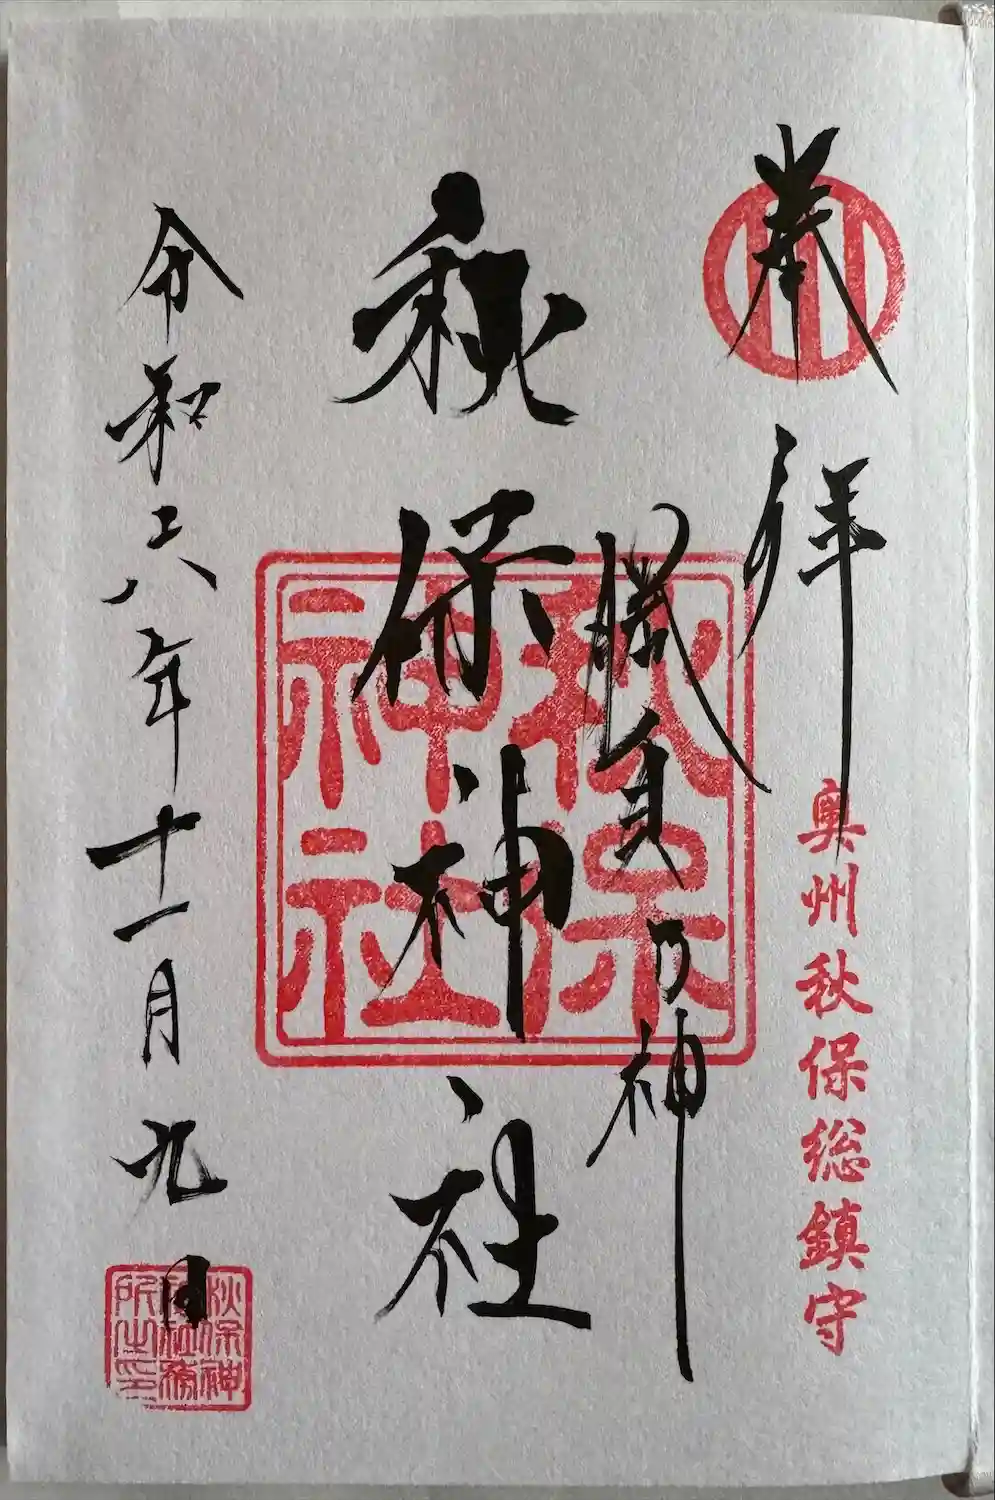 奉拝
奥州秋保総鎮守
勝負の神
秋保神社
秋保
神社
令和六年十一月九日
秋保神
社務
所之印